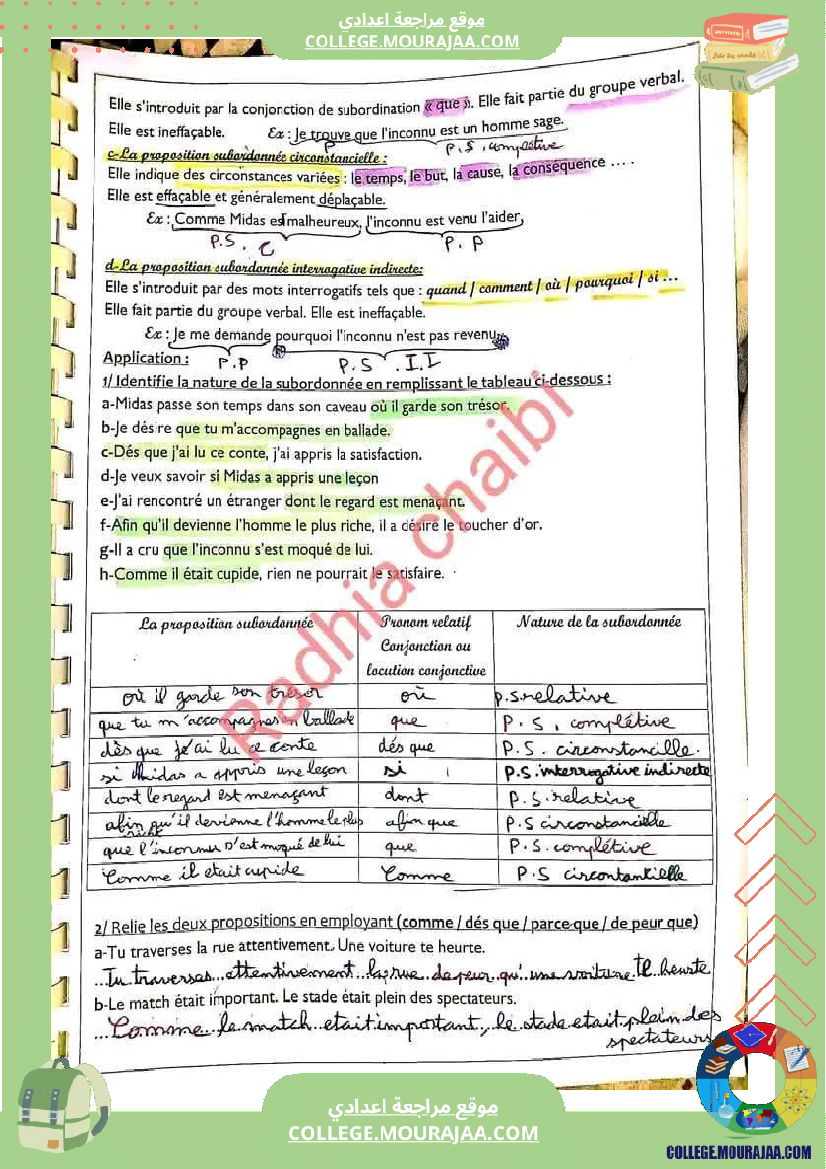 موقع مراجعة اعدادي
COLLEGE.MOURAJAA.COM
Elle s'introduit par la conjonction de subordination « que ». Elle fait partie du groupe verbal.
Elle est ineffaçable. Ex : Je trouve que l'inconnu est un homme sage.
P P.S. complétive
c-La proposition subordonnée circonstancielle :
Elle indique des circonstances variées : le temps, le but, la cause, la conséquence ….
Elle est effaçable et généralement déplaçable.
Ex : Comme Midas est malheureux, l'inconnu est venu l'aider,
P.S. C P.P
d-La proposition subordonnée interrogative indirecte:
Elle s'introduit par des mots interrogatifs tels que : quand / comment / où / pourquoi / si ...
Elle fait partie du groupe verbal. Elle est ineffaçable.
Ex : Je me demande pourquoi l'inconnu n'est pas revenu
Application : P.P P.S .I.I
1/ Identifie la nature de la subordonnée en remplissant le tableau ci-dessous :
a-Midas passe son temps dans son caveau où il garde son trésor.
b-Je dés re que tu m'accompagnes en ballade.
c-Dés que j'ai lu ce conte, j'ai appris la satisfaction.
d-Je veux savoir si Midas a appris une leçon
e-J'ai rencontré un étranger dont le regard est menaçant.
f-Afin qu'il devienne l'homme le plus riche, il a désiré le toucher d'or.
g-Il a cru que l'inconnu s'est moqué de lui.
h-Comme il était cupide, rien ne pourrait le satisfaire.
Radhia chaibi
La proposition subordonnée Pronom relatif Conjonction ou locution conjonctive Nature de la subordonnée
où il garde son trésor où p.s.relative
que tu m'accompagnes en ballade que P.S. complétive
dès que j'ai lu ce conte dés que P.S. circonstancille.
si Midas a appris une leçon si P.S.interrogative indirecte
dont le regard est menaçant dont P.S.relative
afin qu'il devienne l'homme le plus riche afin que P.S circonstancielle
que l'inconnu s'est moqué de lui que P.S.complétive
Comme il etait cupide Comme P.S circontantielle
2/ Relie les deux propositions en employant (comme / dés que / parce que / de peur que)
a-Tu traverses la rue attentivement. Une voiture te heurte.
Tu traverses attentivement la rue de peur qu'une voiture te heurte
b-Le match était important. Le stade était plein des spectateurs.
Comme le match etait important, le stade etait plein des
spectateurs
موقع مراجعة اعدادي
COLLEGE.MOURAJAA.COM
COLLEGE.MOURAJAA.COM